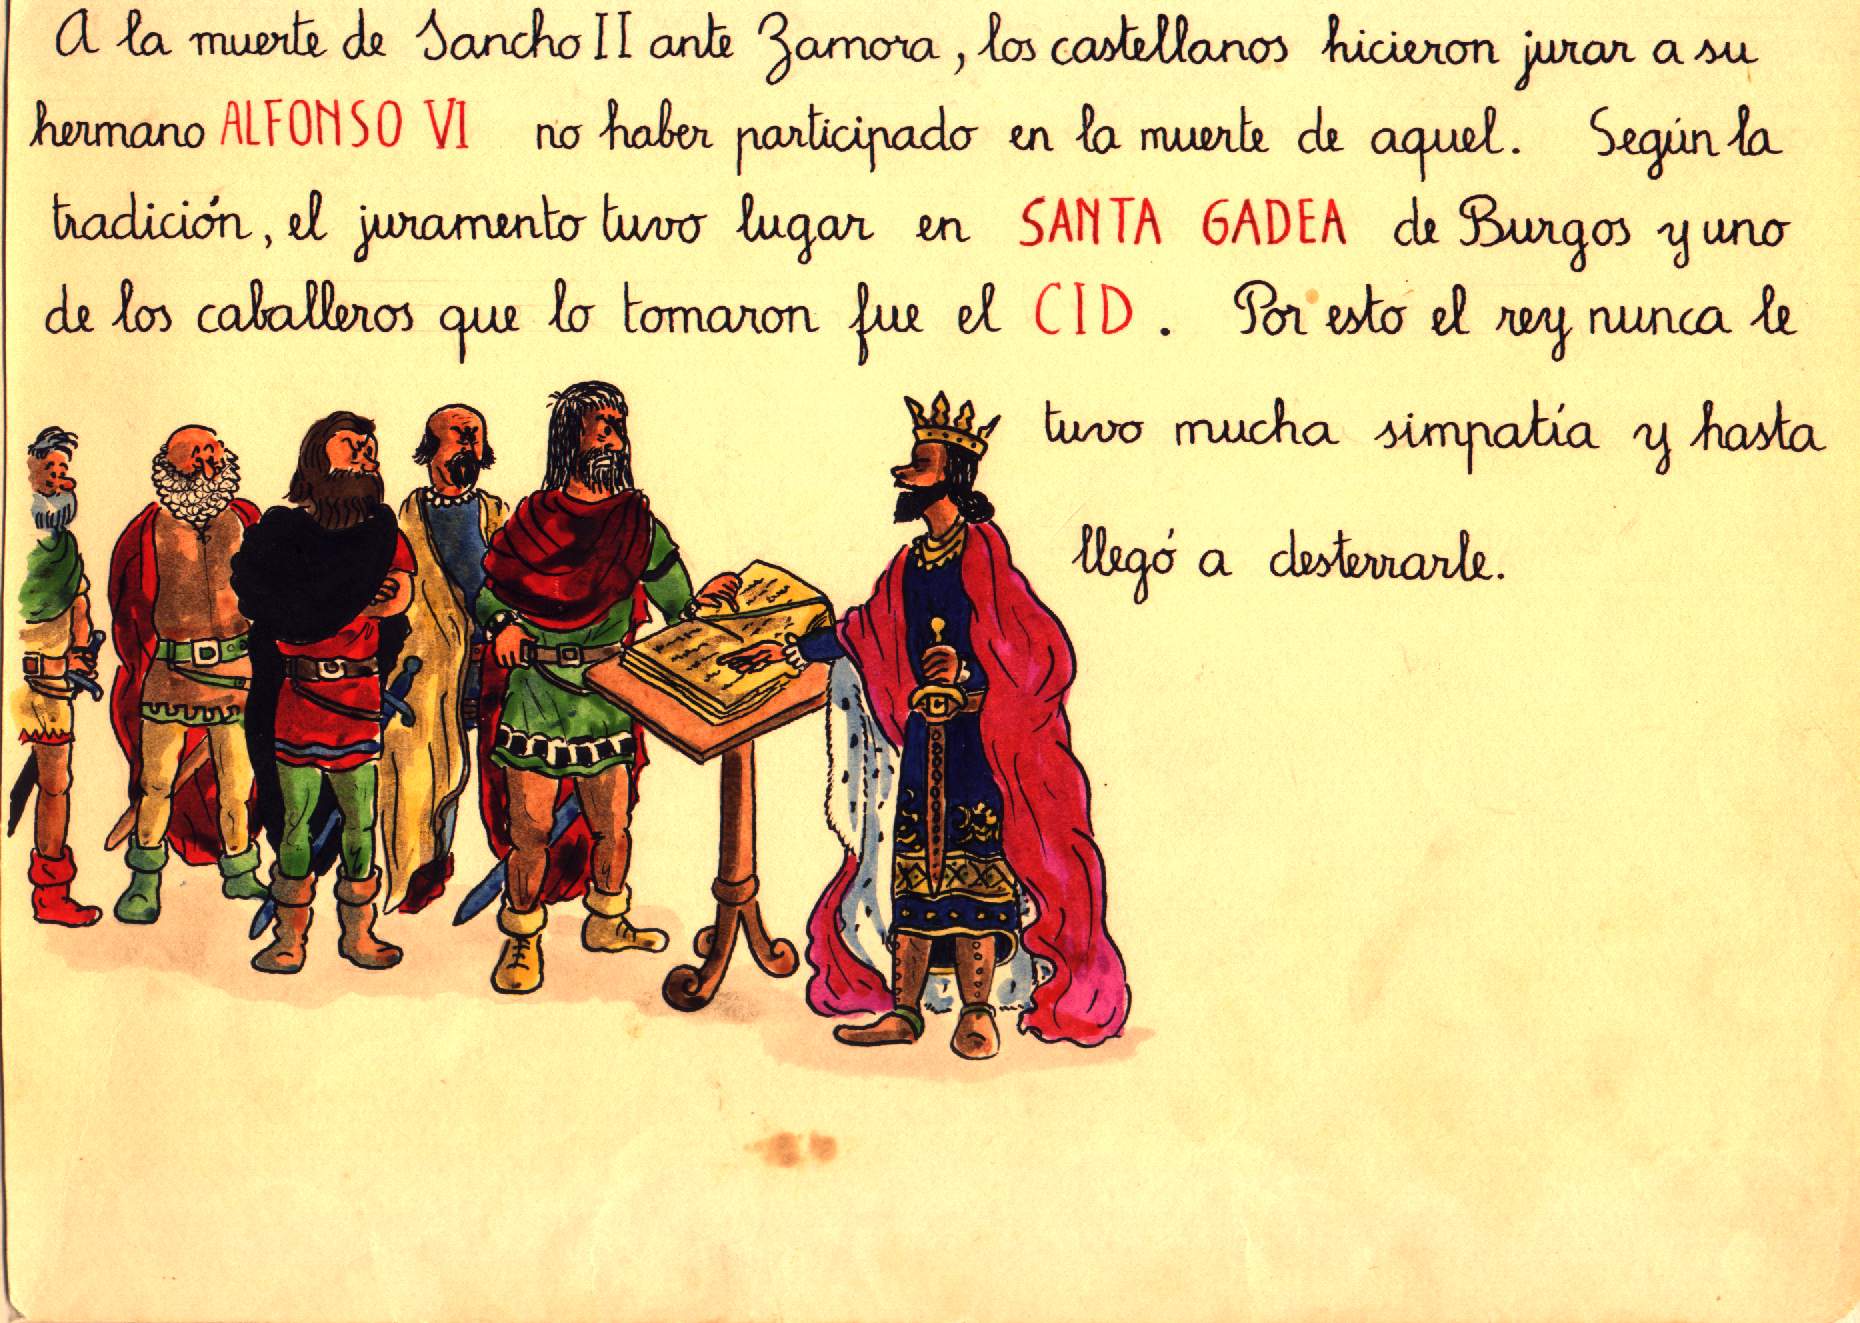 A la muerte de Sancho II ante Zamora, los castellanos hicieron jurar a su
hermano ALFONSO VI no haber participado en la muerte de aquel. Según la
tradición, el juramento tuvo lugar en SANTA GADEA de Burgos y uno
de los caballeros que lo tomaron fue el CID. Por esto el rey nunca le
tuvo mucha simpatía y hasta
llegó a desterrarle.